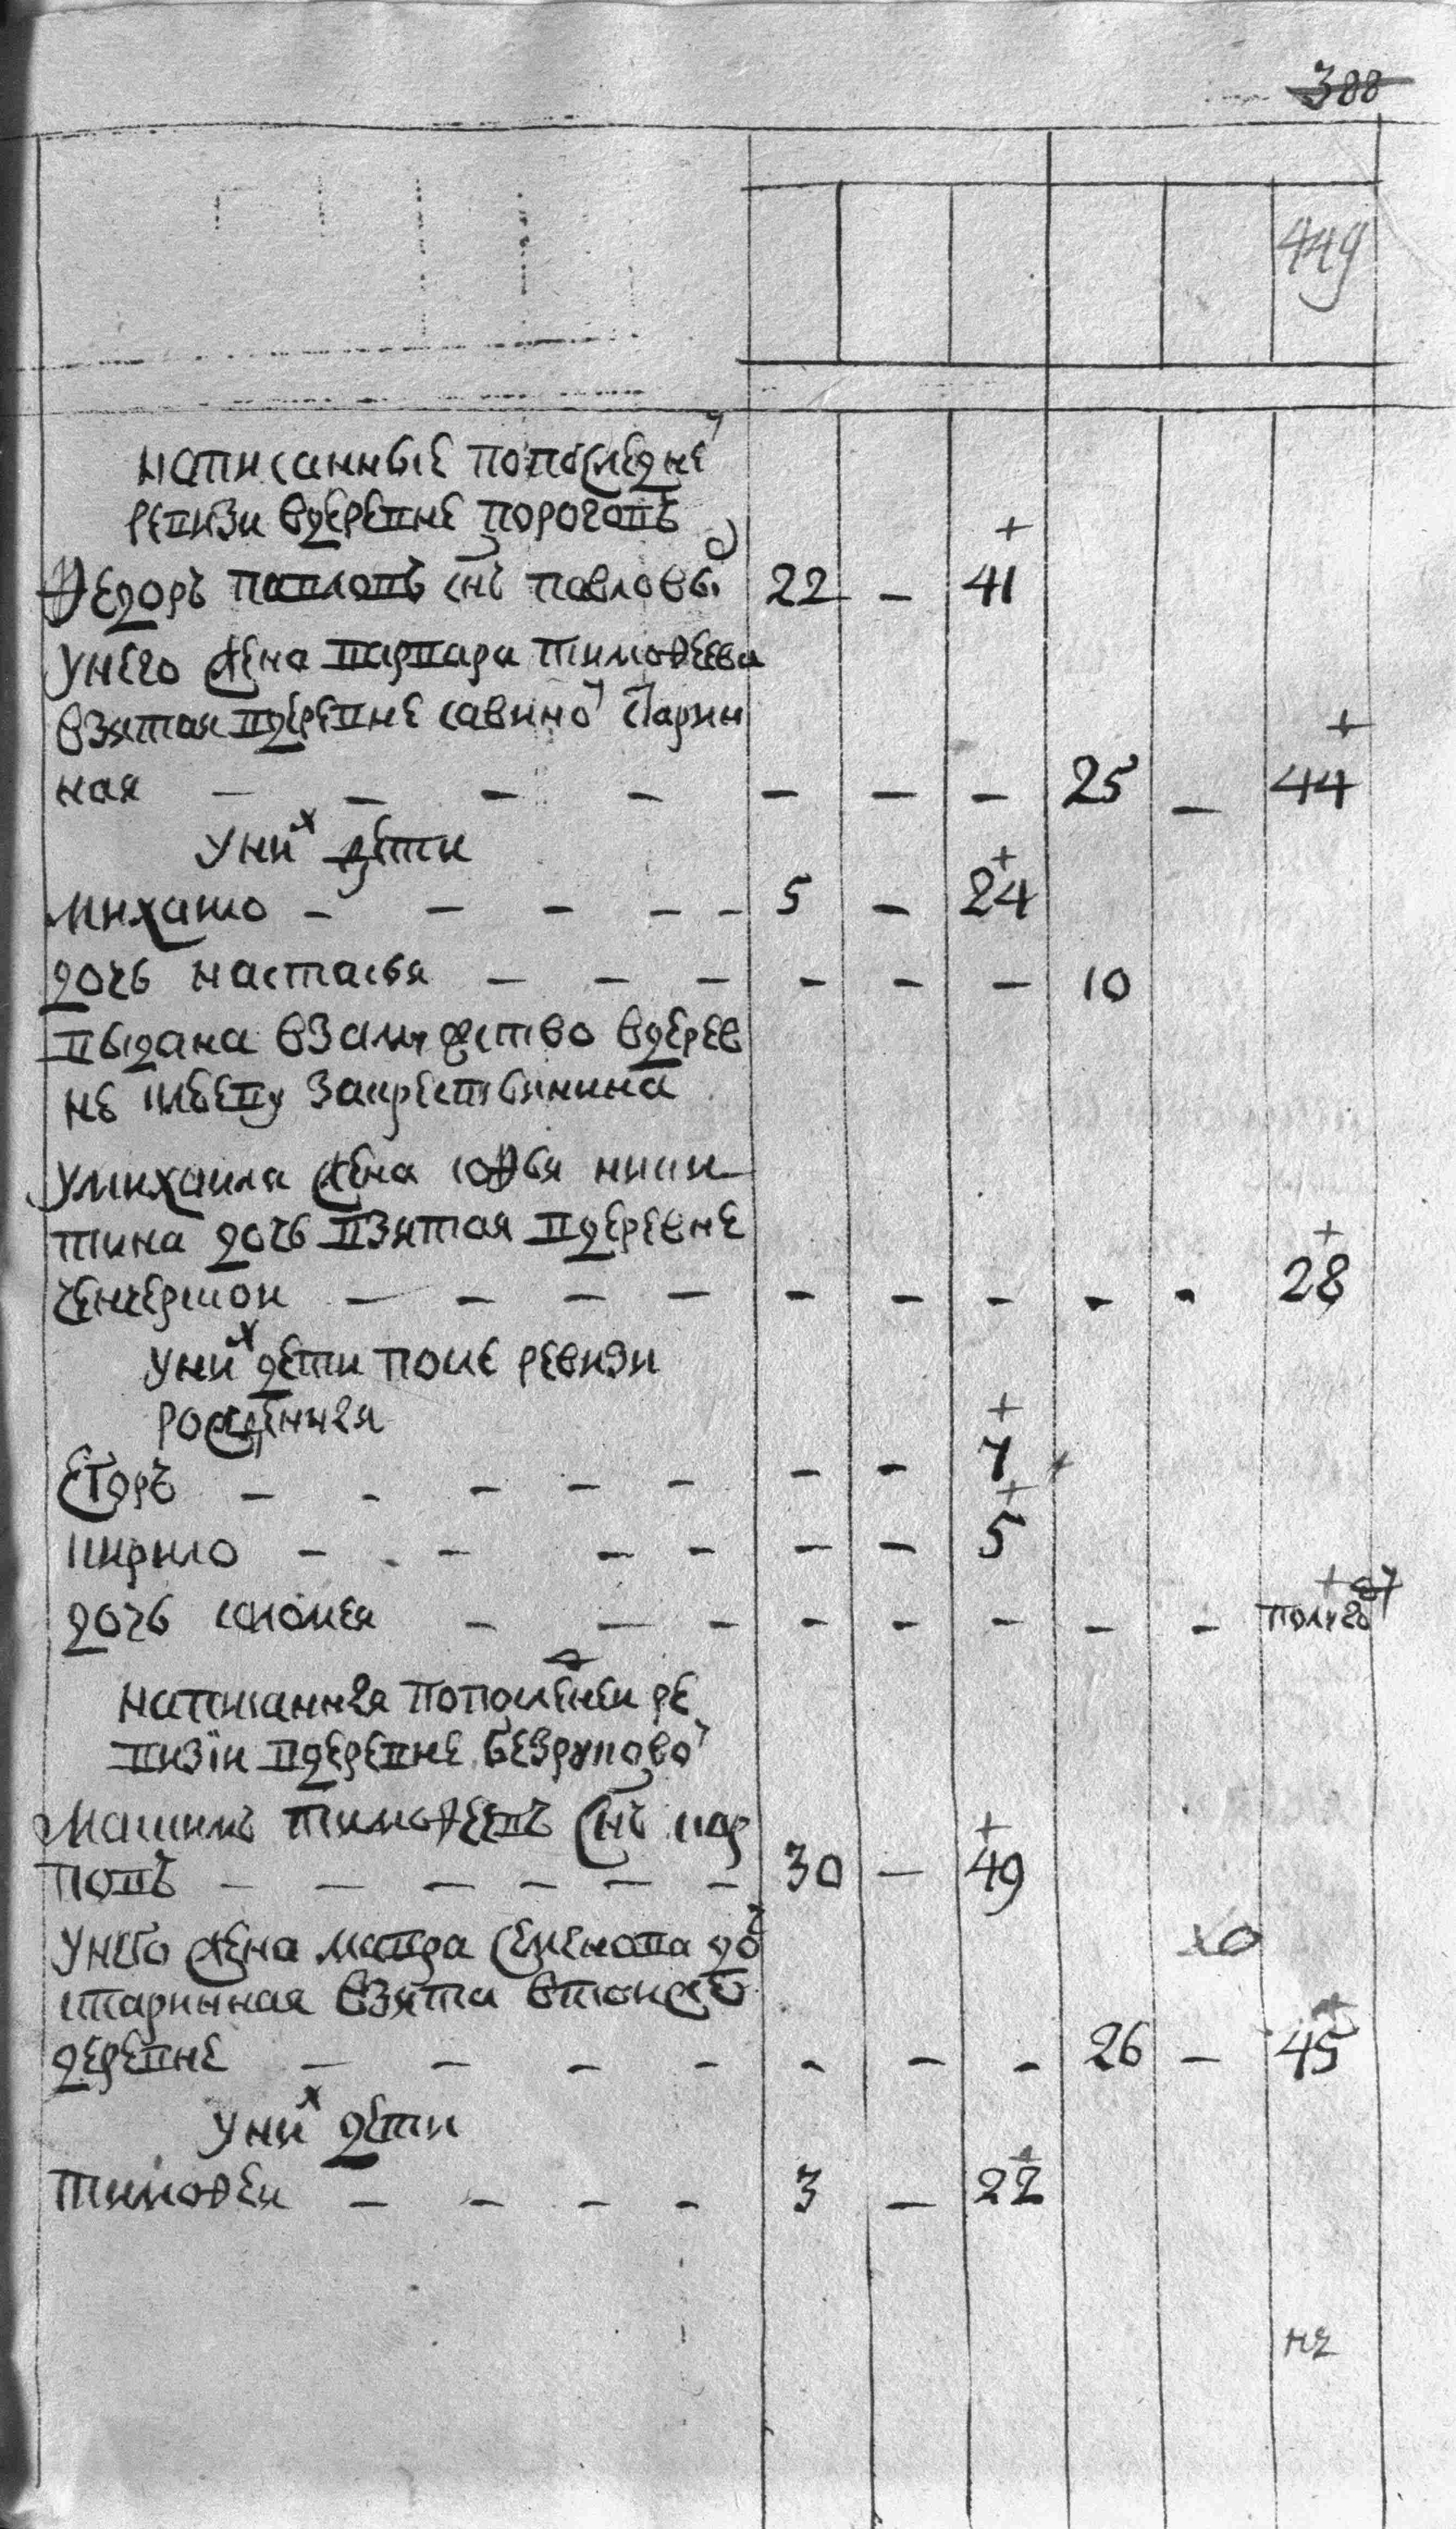 388
449
написанные попоследне й
ревизи вдеревне пороговъ
Ѳедоръ павловъ снъ павловы 22 — 41
унего жена варвара тимоѳеева
взятая вдеревне савино й старин
ная — — — — — — — 25 — 44
уни х дети
михаило — — — — — 5 — 24
дочь настасья — — — — — — 10
выдана взамужство вдерев
не закрестьянина
умихаила жена софья ники
тина дочь взятая вдеревне
— — — — — — — — — 28
уни х дети после ревизи
рожденныя
Егоръ — — — — — — — 7
кирило — — — — — — — 5
дочь соломея — — — — — — — — полуго д
написанныя попоследнеи ре
визіи вдеревне безруково й
максимъ тимоѳеевъ снъ кар
повъ — — — — — — 30 — 49
унего жена мавра семенова до ч
старинная взята втоиже
деревне — — — — — — — 26 — 45
уни х дети
тимоѳеи — — — — 3 — 22